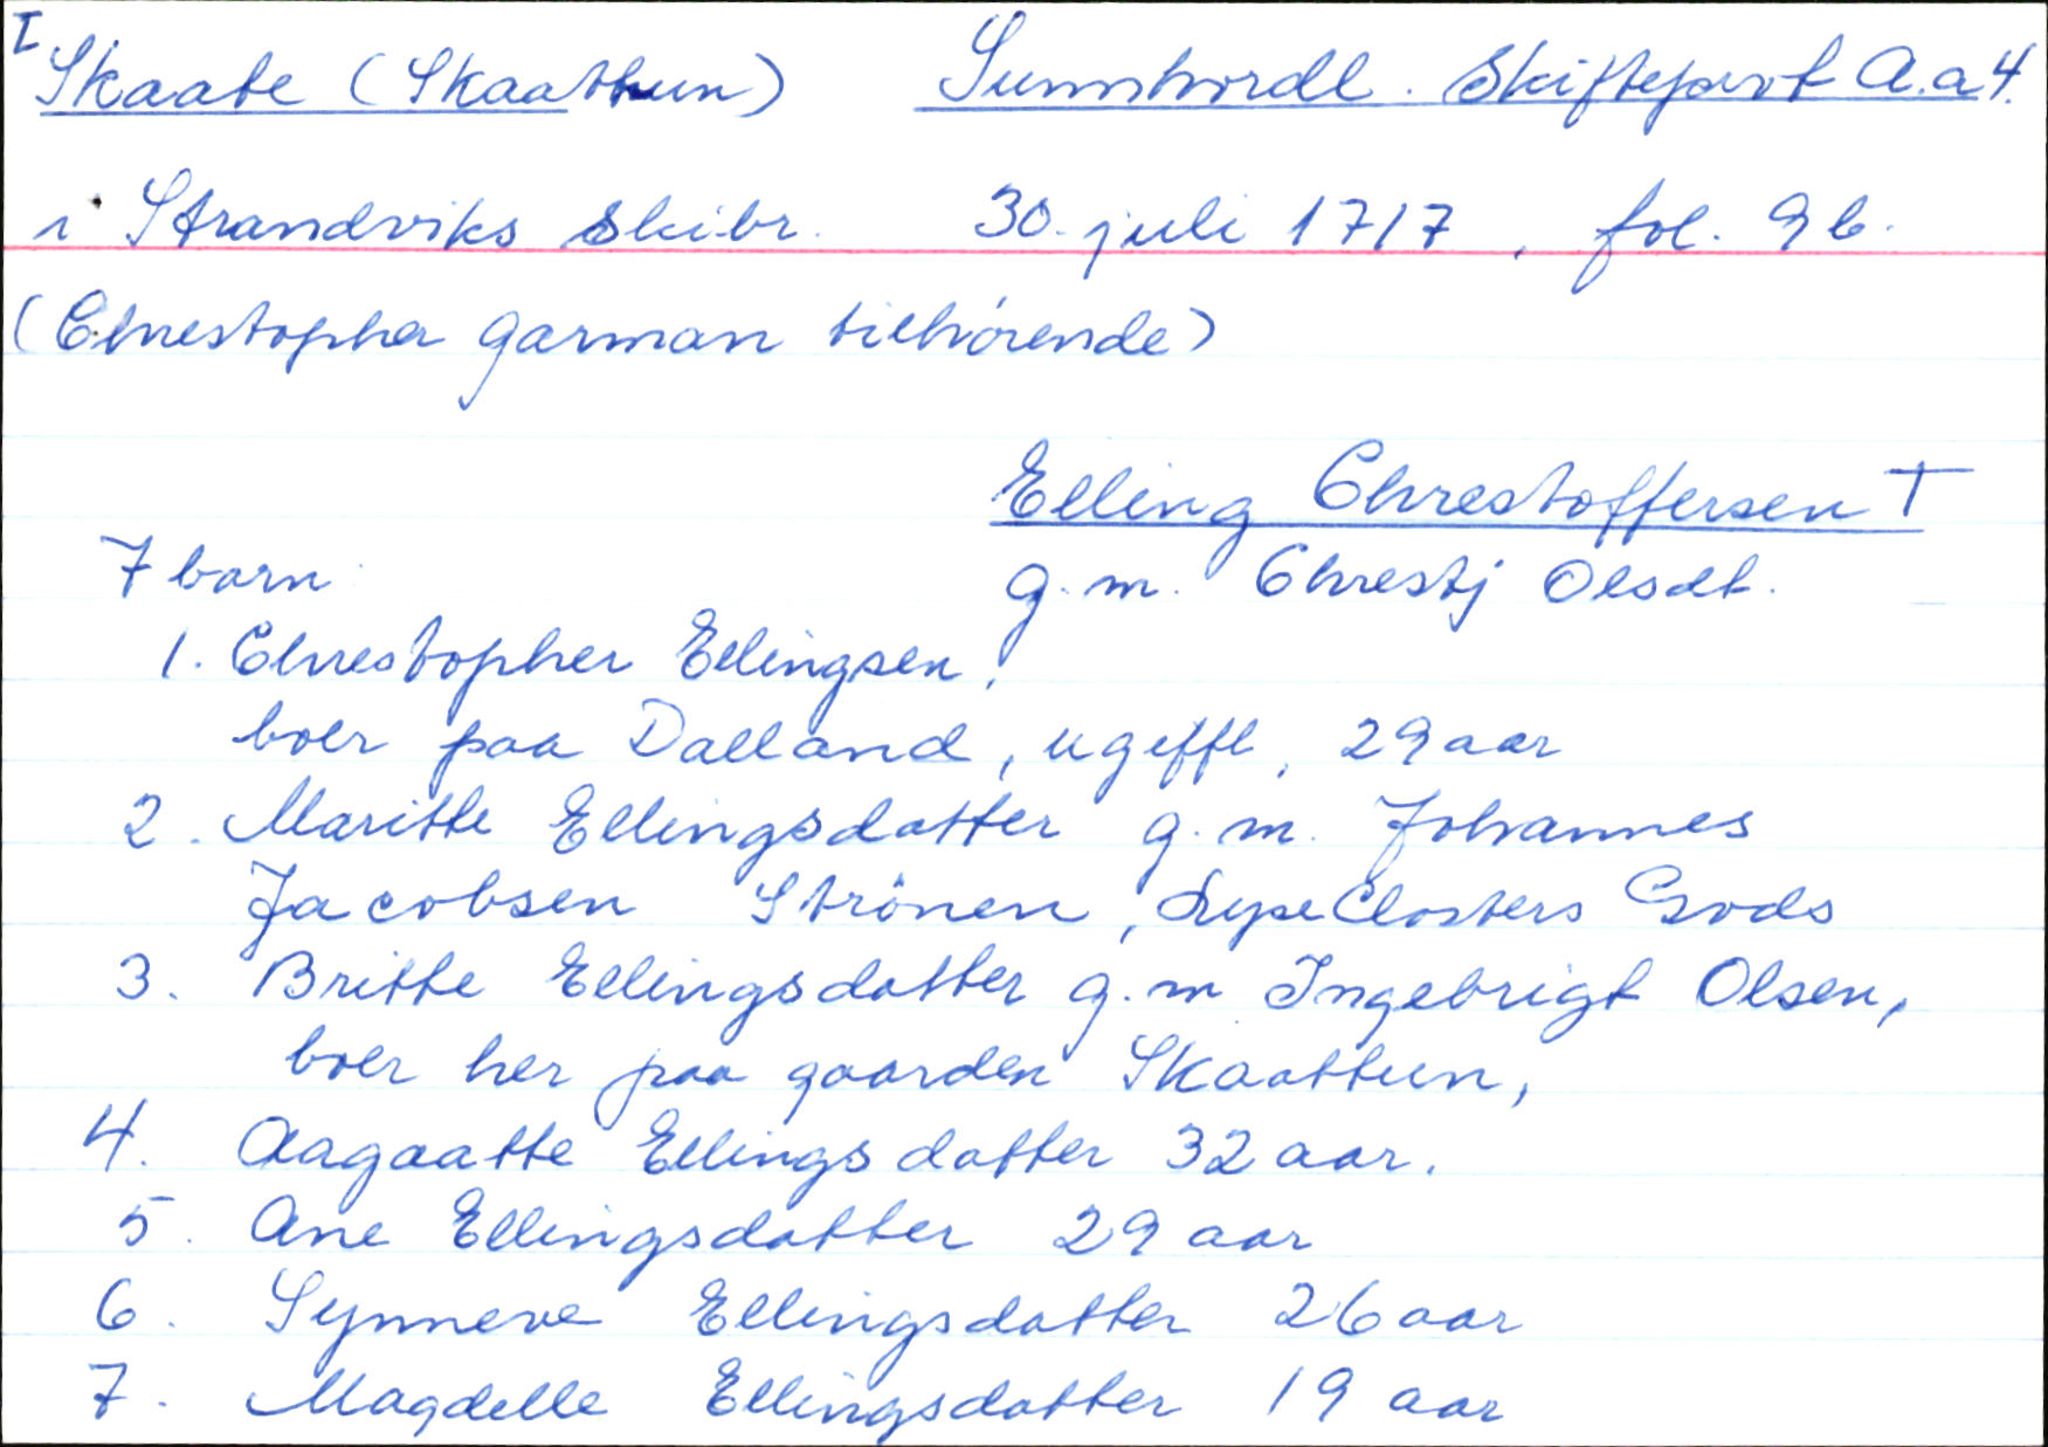 I
Skaate (Skaathun) Sunnhordl. Skifteprot A.a 4.
i Strandviks Skibr. 30. juli 1717, fol. 9 b.
(Chrestopher Garman tilhörende)
Elling Chrestoffersen †
7 barn g.m. Chrestj Olsdt.
1. Chrestopher Ellingsen,
boer paa Dalland, ugifft, 29 aar
2. Maritte Ellingsdatter g.m. Johannes
Jacobsen Strönen, LyseClosters Gods
3. Britte Ellingsdatter g.m Ingebrigt Olsen,
boer her paa gaarden Skaattun,
4. Aagaatte Ellingsdatter 32 aar.
5. Ane Ellingsdatter 29 aar
6. Synneve Ellingsdatter 26 aar
7. Magdelle Ellingsdatter 19 aar